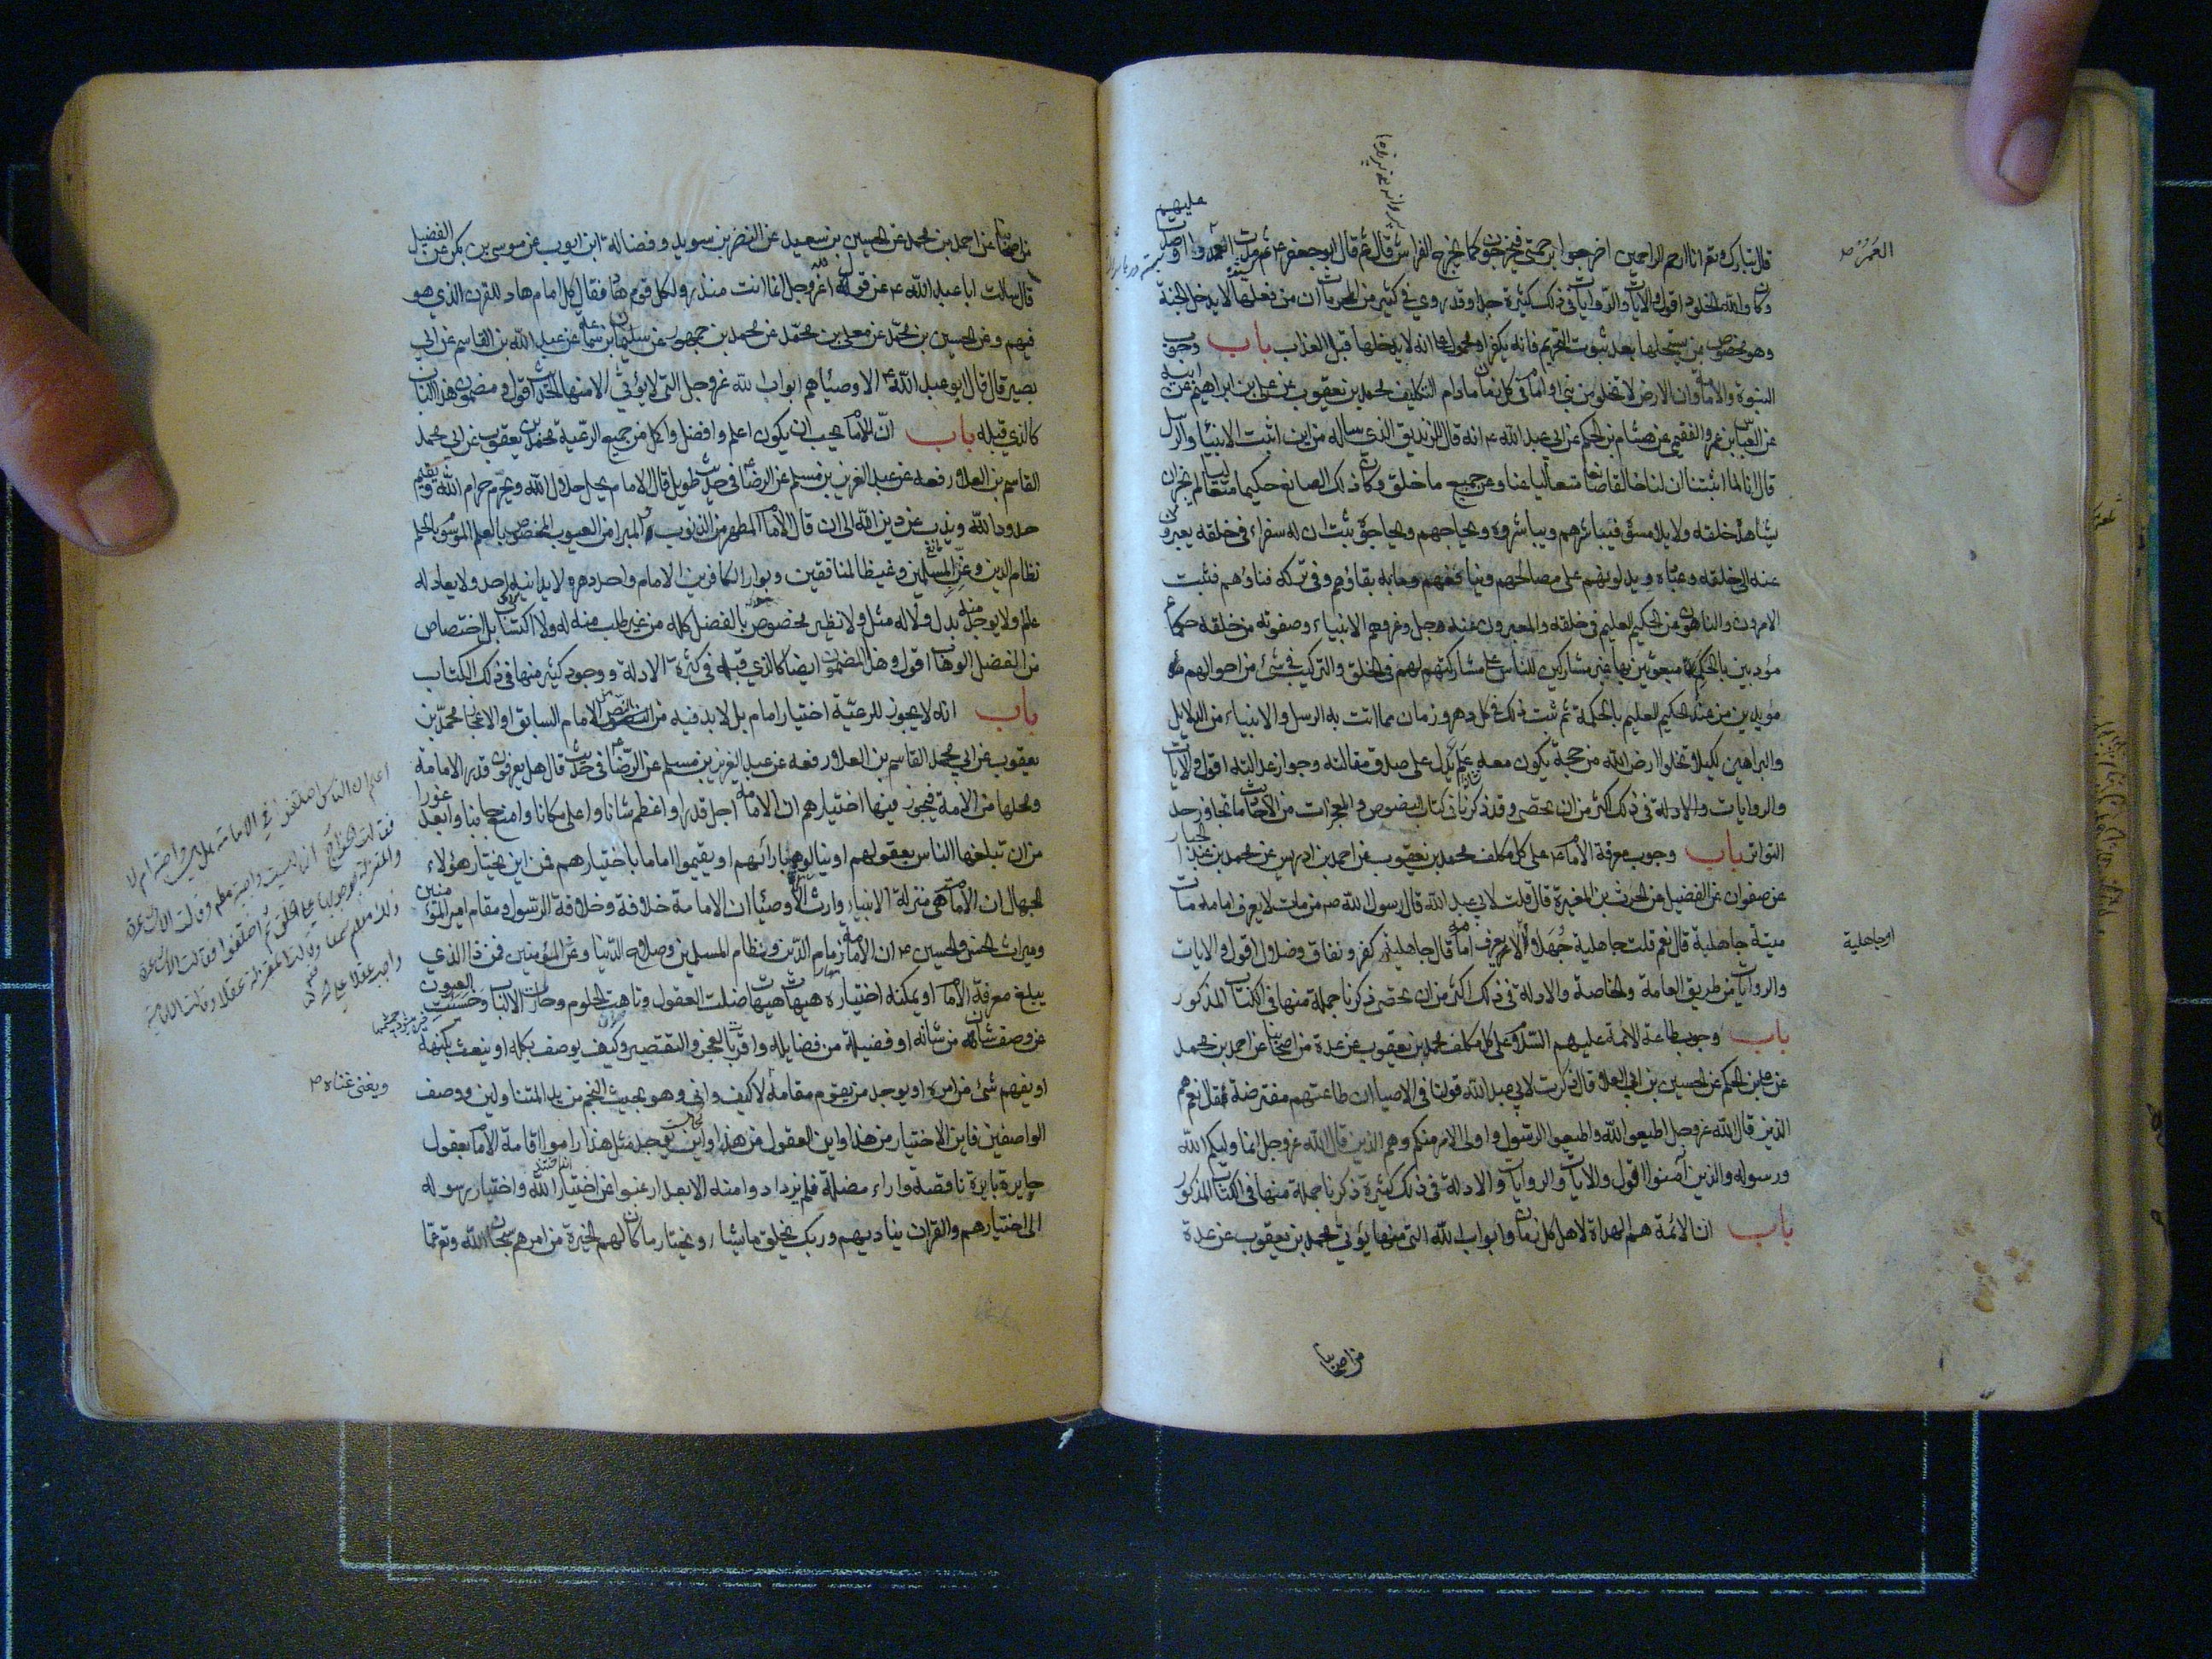 قال تبارك وتعالى انا ارحم الراحمين اخرجوا برحمتي فيخرجون كما يخرج الفراش قال ثم قال ابو جعفر ع ثم مدت العمد واوصدت عليهم
وكان والله الخلود اقول والايات والروايات في ذلك كثيرة جدا وقد روي في كثير من المحرمات ان من فعلها لا يدخل الجنة
وهو مخصوص بمن يستحلها بعد ثبوت التحريم فانه يكفر او محمول على انه لا يدخلها قبل العذاب باب وجوب
النبوة والامامة وان الارض لا تخلو من نبي او امام في كل زمان مادام التكليف محمد بن يعقوب عن علي بن ابراهيم عن ابيه
عن العباس بن عمرو الفقيمي عن هشام بن الحكم عن ابي عبد الله ع انه قال للزنديق الذي ساله من اين اثبت الانبياء والرسل
قال انا لما اثبتنا ان لنا خالقا صانعا متعاليا عنا وعن جميع ما خلق وكان ذلك الصانع حكيما متعاليا لم يجز ان
يشاهده خلقه ولا يلامسوه فيباشرهم ويباشروه ويحاجهم ويحاجوه ثبت ان له سفراء في خلقه يعبرون
عنه الى خلقه وعباده ويدلونهم على مصالحهم ومنافعهم وما به بقاؤهم وفي تركه فناؤهم فثبت
الامرون والناهون عن الحكيم العليم في خلقه والمعبرون عنه جل وعز وهم الانبياء وصفوته من خلقه حكماء
مؤدبين بالحكمة مبعوثين بها غير مشاركين للناس على مشاركتهم لهم في الخلق والتركيب في شئ من احوالهم
مؤيدين من عند الحكيم العليم بالحكمة ثم ثبت ذلك في كل دهر وزمان مما اتت به الرسل والانبياء من الدلايل
والبراهين لكيلا تخلوا ارض الله من حجة يكون معه علم يدل على صدق مقالته وجواز عدالته اقول والايات
والروايات والادلة في ذلك اكثر من ان تحصى وقد ذكرنا في كتاب النصوص والمعجزات من الاحاديث ما تجاوز حد
التواتر باب وجوب معرفة الامام ع على كل مكلف محمد بن يعقوب عن احمد بن ادريس عن محمد بن عبد الجبار
عن صفوان عن الفضيل عن الحرث بن المغيرة قال قلت لابي عبد الله قال رسول الله ص من مات لا يعرف امامه مات
ميتة جاهلية قال نعم قلت جاهلية جهلاء او جاهلية لا يعرف امامه قال جاهلية كفر ونفاق وضلال اقول والايات
والروايات من طريق العامة والخاصة والادلة في ذلك اكثر من ان تحصى ذكرنا جملة منها في الكتاب المذكور
باب وجوب طاعة الائمة عليهم السلام على كل مكلف محمد بن يعقوب عن عدة من اصحابنا عن احمد بن محمد
عن علي بن الحكم عن الحسين بن ابي العلا قال ذكرت لابي عبد الله قولنا في الاوصياء ان طاعتهم مفترضة فقال نعم هم
الذين قال الله عز وجل اطيعوا الله واطيعوا الرسول واولى الامر منكم وهم الذين قال الله عز وجل انما وليكم الله
ورسوله والذين آمنوا اقول والايات والروايات والادلة في ذلك كثيرة ذكرنا جملة منها في الكتاب المذكور
باب ان الائمة هم الهداة لاهل كل زمان وابواب الله التي منها يؤتى محمد بن يعقوب عن عدة
من اصحابنا
من اصحابنا عن احمد بن محمد عن الحسين بن سعيد عن النضر بن سويد وفضالة ابن ايوب عن موسى بن بكر عن الفضيل
قال سالت ابا عبد الله ع عن قول الله عز وجل انما انت منذر ولكل قوم هاد فقال كل امام هاد للقرن الذي هو
فيهم وعن الحسين بن محمد عن معلى بن محمد عن محمد بن جمهور عن سليمان بن سماعة عن عبد الله بن القاسم عن ابي
بصير قال قال ابو عبد الله ع الاوصياء هم ابواب الله عز وجل التي لا يؤتى الا منها الحديث اقول ومضمون هذا الباب
كالذي قبله باب ان الامام يجب ان يكون اعلم وافضل واكمل من جميع الرعية محمد بن يعقوب عن ابي محمد
القاسم بن العلا رفعه عن عبد العزيز بن مسلم عن الرضا ع في حديث طويل قال الامام يحل حلال الله ويحرم حرام الله ويقيم
حدود الله ويذب عن دين الله الى ان قال الامام المطهر من الذنوب المبرا من العيوب المخصوص بالعلم الموسوم بالحلم
نظام الدين وعز المسلمين وغيظ المنافقين وبوار الكافرين الامام واحد دهره لا يدانيه احد ولا يعادله
علم ولا يوجد منه بدل ولا له مثل ولا نظير مخصوص بالفضل كله من غير طلب منه له ولا اكتساب بل اختصاص
من المفضل الوهاب اقول وهذا المضمون ايضا كالذي قبله في كثرة الادلة ووجود كثير منها في ذلك الكتاب
باب انه لا يجوز للرعية اختيار امام بل لا بد فيه من النص من الامام السابق او الاعجاز محمد بن
يعقوب عن ابي محمد القاسم بن العلا رفعه عن عبد العزيز بن مسلم عن الرضا ع في حديث قال هل يعرفون قدر الامامة
ومحلها من الامة فيجوز فيها اختيارهم ان الامامة اجل قدرا واعظم شانا واعلى مكانا وامنع جانبا وابعد غورا
من ان تبلغها الناس بعقولهم او ينالوها بارائهم او يقيموا اماما باختيارهم فمن اين يختار هؤلاء
الجهال ان الامامة هي منزلة الانبياء وارث الاوصياء ان الامامة خلافة الله وخلافة الرسول ومقام امير المؤمنين
وميراث الحسن والحسين ع ان الامامة زمام الدين ونظام المسلمين وصلاح الدنيا وعز المؤمنين فمن ذا الذي
يبلغ معرفة الامام او يمكنه اختياره هيهات هيهات ضلت العقول وتاهت الحلوم وحارت الالباب وخسئت العيون
عن وصف شان من شانه او فضيلة من فضايله واقرت بالعجز والتقصير وكيف يوصف بكله او ينعت بكنهه
او يفهم شئ من امره او يوجد من يقوم مقامه لا كيف وانى وهو بحيث النجم من يد المتناولين ووصف
ويغنى غناه ص
الواصفين فاين الاختيار من هذا واين العقول من هذا واين يوجد مثل هذا راموا اقامة الامام بعقول
حايرة بايرة ناقصة واراء مضلة فلم يزدادوا منه الا بعدا رغبوا عن اختيار الله واختيار رسوله
الى اختيارهم والقران يناديهم وربك يخلق ما يشاء ويختار ما كان لهم الخيرة من امرهم سبحان الله وتعالى عما